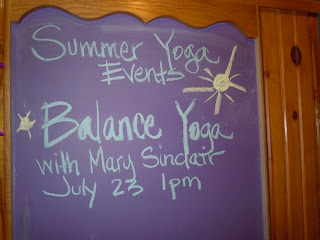 Summer Yoga
Events
Balance Yoga
with Mary Sinclair
July 23 1pm